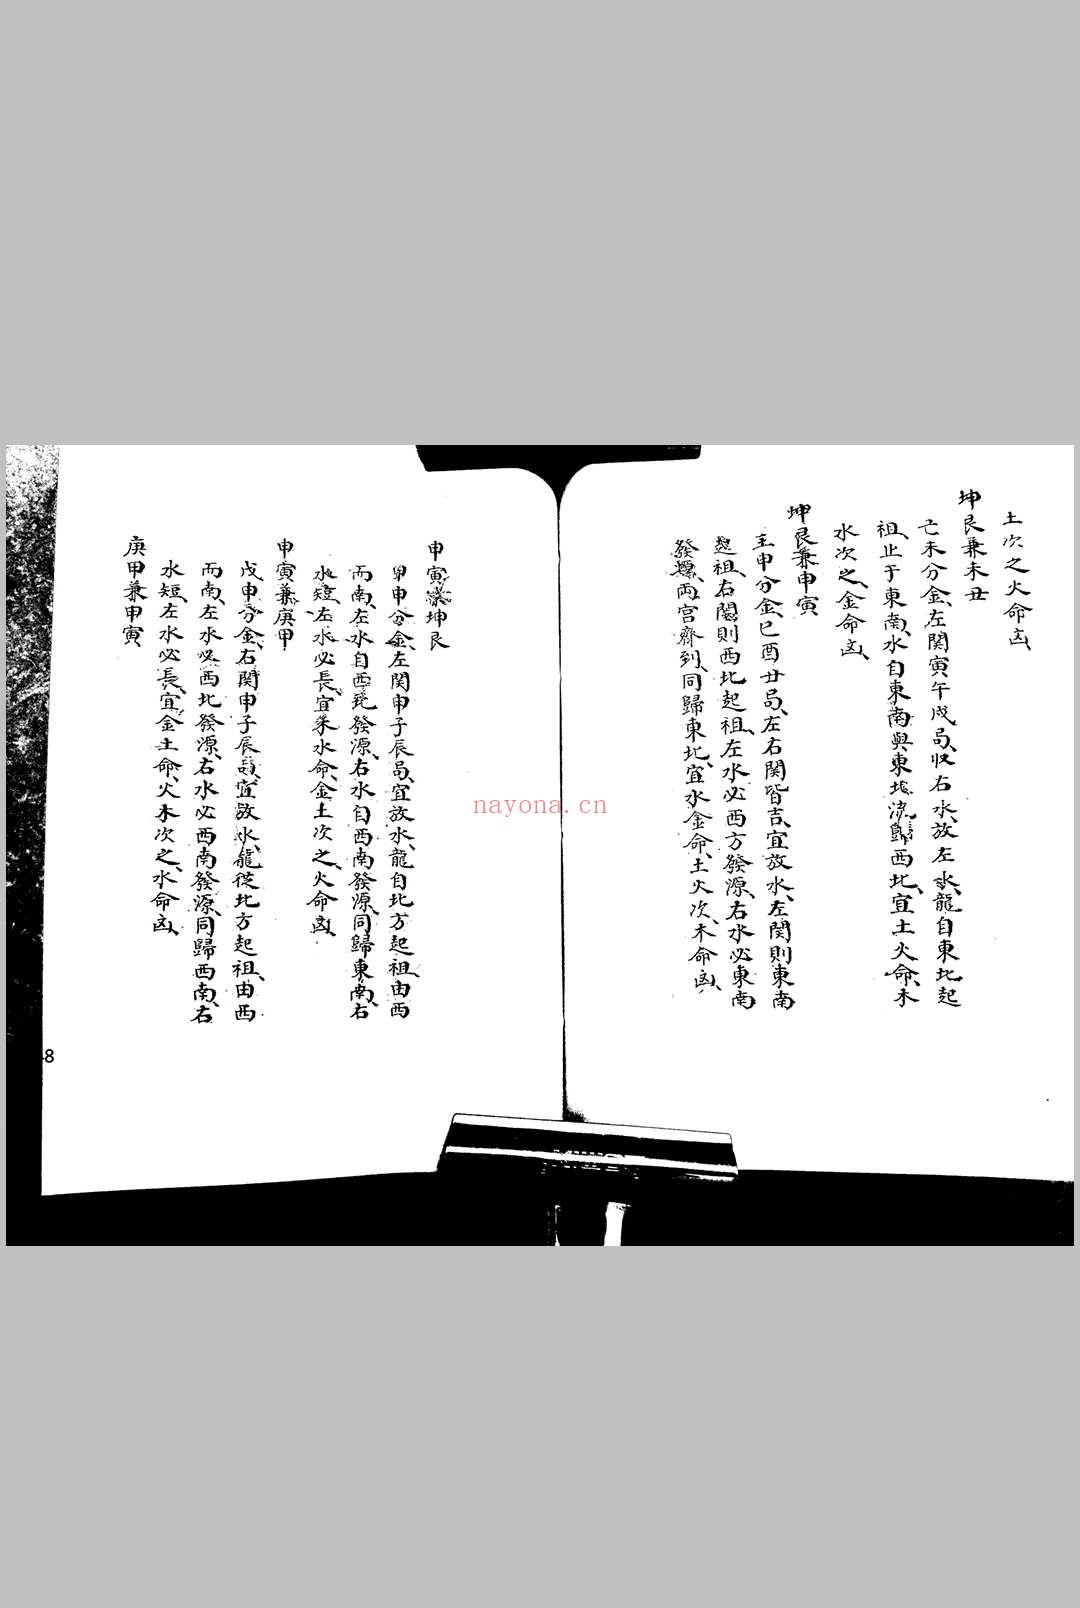 土次之火命凶、
坤艮兼未丑
己未分金、左関寅午戌局、収右水、放左水、龍自東北起
祖、止于東南、水自東南與東北流歸西北、宜土火命、木
水次之、金命凶、
坤艮兼申寅
壬申分金、巳酉丑局、左右関皆吉、宜放水、左関則東南
起祖、右関則西北起祖、左水必西方發源、右水必東南
發源、両宮齊到、同歸東北、宜水金命、土火次、木命凶、
申寅兼坤艮
甲申分金、左関申子辰局、宜放水、龍自北方起祖、由西
而南、左水自西北發源、右水自西南發源、同歸東南、右
水短、左水必長、宜木水命、金土次之、火命凶、
申寅兼庚甲
戊申分金、右関申子辰局、宜放水、龍從北方起祖、由西
而南、左水必西北發源、右水必西南發源、同歸西南、右
水短、左水必長、宜金土命、火木次之、水命凶、
庚甲兼申寅
8
nayona.cn